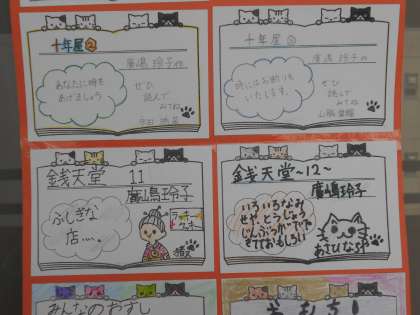 十年屋②
廣嶋 玲子 作
あなたに時を
あげましょう
ぜひ
読んで
みてね
十年屋
廣嶋 玲子 作
時にはお断りも
いたします。
ぜひ
読んで
みてね
銭天堂 11
廣嶋玲子
ふしぎな
店……
ラッキー
クッキー
銭天堂~12~
廣嶋玲子
いろいろなみ
せや、とうじょう
じんぶつがでて
きておもしろい
みんなのおすし